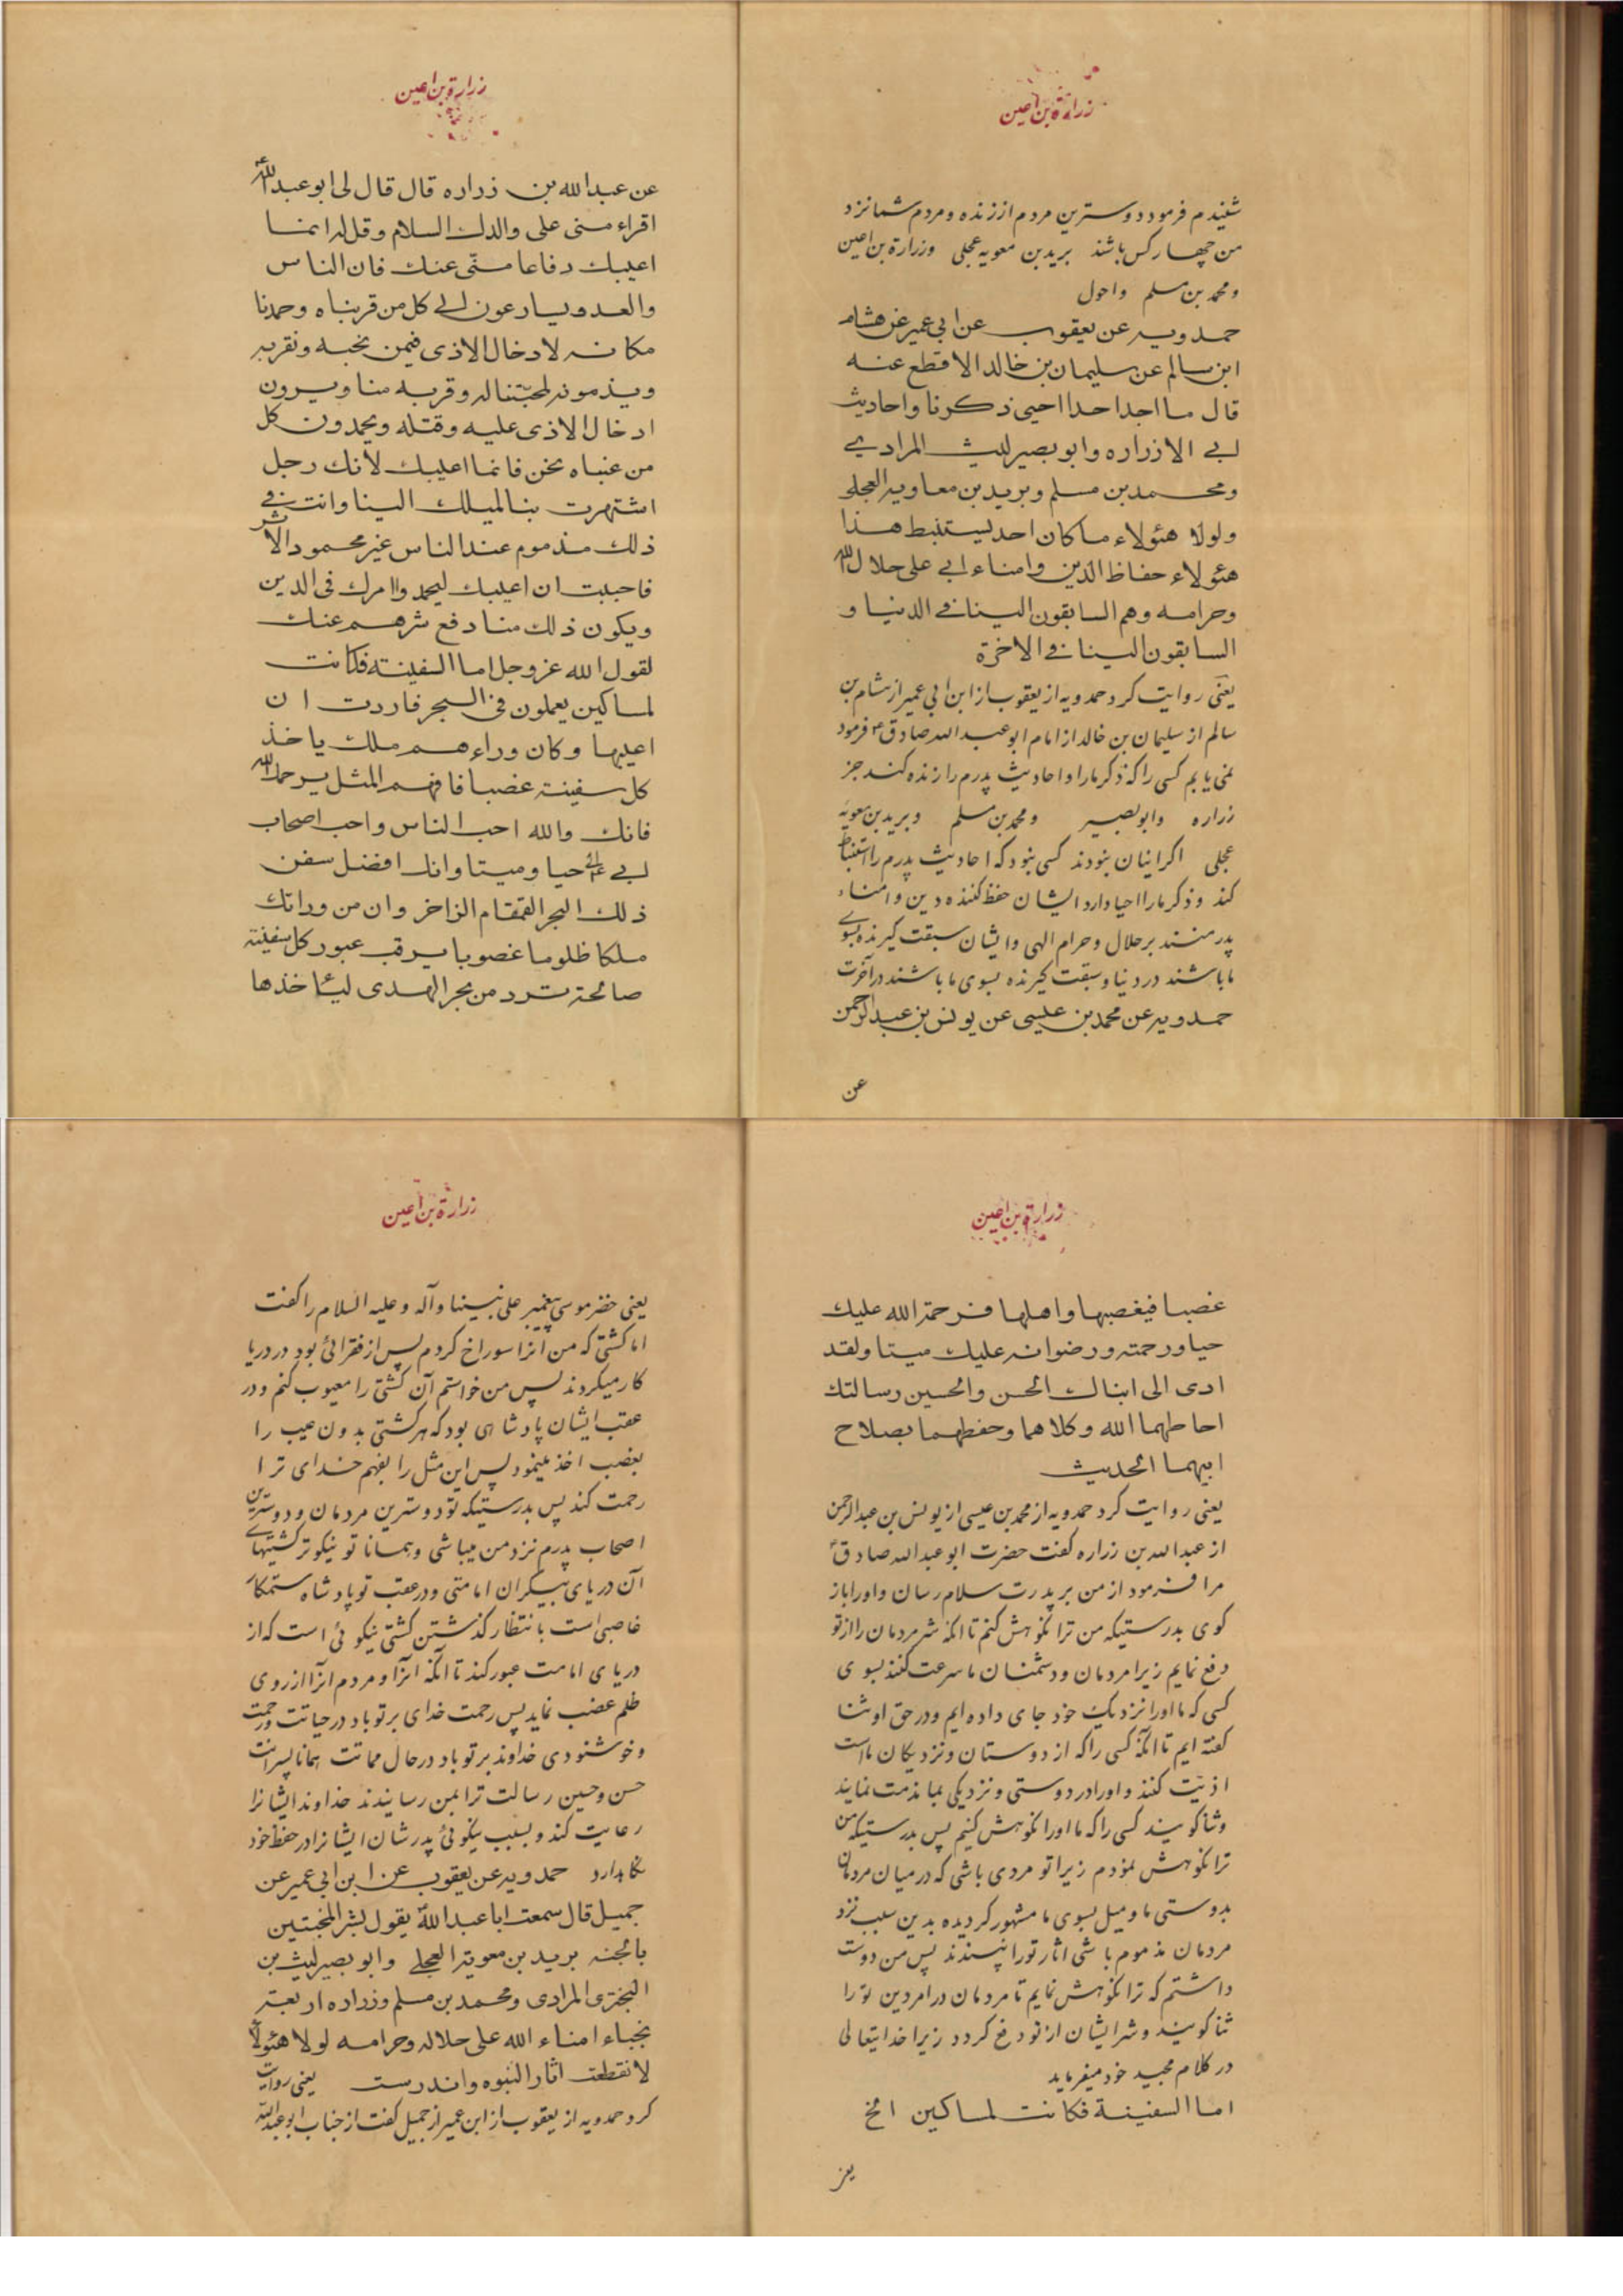 زرارة بن اعین
شنیدم فرمود دوسترین مردم از زنده و مرده شما نزد
من چهار کس باشند برید بن معویه عجلی وزرارة بن اعین
ومحمد بن مسلم واحول
حمدویه عن یعقوب عن ابی عمیر عن هشام
ابن سالم عن سلیمان بن خالد الاقطع عنه
قال ما اجد احدا احیی ذکرنا واحادیث
ابی الا زراره وابو بصیر لیث المرادی
ومحمد بن مسلم وبرید بن معاویه العجلی
ولولا هئولاء ما کان احد یستنبط هذا
هئولاء حفاظ الدین وامناء ابی علی حلال الله
وحرامه وهم السابقون الینا فی الدنیا و
السابقون الینا فی الاخرة
یعنی روایت کرد حمدویه از یعقوب از ابن ابی عمیر از هشام بن
سالم از سلیمان بن خالد از امام ابو عبد الله صادق ع فرمود
نمی یابم کسی را که ذکر ما را و احادیث پدرم را زنده کند جز
زراره وابو بصیر ومحمد بن مسلم وبرید بن معویه
عجلی اکر اینان نبودند کسی نبود که احادیث پدرم را استنباط
کند و ذکر ما را احیا دارد ایشان حفظ کننده دین و امناء
پدر منند بر حلال و حرام الهی و ایشان سبقت کیرنده بسوی
ما باشند در دنیا و سبقت کیرنده بسوی ما باشند در آخرت
حمدویه عن محمد بن عیسی عن یونس بن عبد الرحمن
عن
زرارة بن اعین
عن عبد الله بن زراره قال قال لی ابو عبد الله ع
اقراء منی علی والدك السلام وقل له انما
اعیبك دفاعا منّی عنك فان الناس
والعدو یسارعون الی کل من قربناه وحمدنا
مکانه لادخال الاذی فیمن نحبه ونقربه
ویذمونه لمحبّتنا له وقربه منا ویرون
ادخال الاذی علیه وقتله ویحمدون کل
من عبناه نحن فانما اعیبك لأنك رجل
اشتهرت بنا لمیلك الینا وانت فی
ذلك مذموم عند الناس غیر محمود الاثر
فاحببت ان اعیبك لیحمدوا امرك فی الدین
ویکون ذلك منا دفع شرهم عنك
لقول الله عز وجل اما السفینة فکانت
لمساکین یعملون فی البحر فاردت ان
اعیبها وکان وراءهم ملك یاخذ
کل سفینة غصبا فافهم المثل یرحمك الله
فانك والله احب الناس واحب اصحاب
ابی الی حیا ومیتا وانك افضل سفن
ذلك البحر القمقام الزاخر وان من ورائك
ملکا ظلوما غصوبا یرقب عبور کل سفینة
صالحة ترد من بحر الهدی لیئاخذها
زرارة بن اعین
غصبا فیغصبها واهلها فرحمة الله علیك
حیا ورحمته ورضوانه علیك میتا ولقد
ادی الی ابناك الحسن والحسین رسالتك
احاطهما الله وکلاهما وحفظهما بصلاح
ابیهما الحدیث
یعنی روایت کرد حمدویه از محمد بن عیسی از یونس بن عبد الرحمن
از عبد الله بن زراره کفت حضرت ابو عبد الله صادق ع
مرا فرمود از من بر پدرت سلام رسان و او را باز
کوی بدرستیکه من ترا نکوهش کنم تا انکه شر مردمان را از تو
دفع نمایم زیرا مردمان و دشمنان ما سرعت کنند بسوی
کسی که ما او را نزدیک خود جای داده ایم و در حق او ثنا
کفته ایم تا آنکه کسی را که از دوستان و نزدیکان ما است
اذیّت کنند و او را در دوستی و نزدیکی بما مذمت نمایند
وثنا کویند کسی را که ما او را نکوهش کنیم پس بدرستیکه من
ترا نکوهش نمودم زیرا تو مردی باشی که در میان مردمان
بدوستی ما و میل بسوی ما مشهور کردیده بدین سبب نزد
مردمان مذموم باشی اثار تو را نپسندند پس من دوست
داشتم که ترا نکوهش نمایم تا مردمان در امر دین تو را
ثنا کویند و شر ایشان از تو دفع کردد زیرا خدایتعالی
در کلام مجید خود میفرماید
اما السفینة فکانت لمساکین الخ
یعنی
زرارة بن اعین
یعنی خضر موسی پیغمبر علی نبینا وآله وعلیه السلام را کفت
اما کشتی که من آنرا سوراخ کردم پس از فقرائی بود در دریا
کار میکردند پس من خواستم آن کشتی را معیوب کنم و در
عقب ایشان پادشاهی بود که هر کشتی بدون عیب را
بغصب اخذ مینمود پس این مثل را بفهم خدای ترا
رحمت کند پس بدرستیکه تو دوسترین مردمان و دوسترین
اصحاب پدرم نزد من میباشی و همانا تو نیکوتر کشتیهای
آن دریای بیکران امامتی و در عقب تو پادشاه ستمکار
غاصبی است بانتظار کذشتن کشتی نیکوئی است که از
دریای امامت عبور کند تا آنکه آنرا و مردم آنرا از روی
ظلم غصب نماید پس رحمت خدای بر تو باد در حیاتت و رحمت
وخوشنودی خداوند بر تو باد در حال مماتت همانا پسرانت
حسن و حسین رسالت ترا بمن رسانیدند خداوند ایشانرا
رعایت کند و بسبب نیکوئی پدرشان ایشانرا در حفظ خود
نکاهدارد حمدویه عن یعقوب عن ابن ابی عمیر عن
جمیل قال سمعت ابا عبد الله ع یقول بشر المخبتین
بالجنه برید بن معویة العجلی وابو بصیر لیث بن
البختری المرادی ومحمد بن مسلم وزراره اربعة
نجباء امناء الله علی حلاله وحرامه لولا هئولاء
لانقطعت اثار النبوه واندرست یعنی روایت
کرد حمدویه از یعقوب از ابن عمیر از جمیل کفت از جناب ابو عبد الله